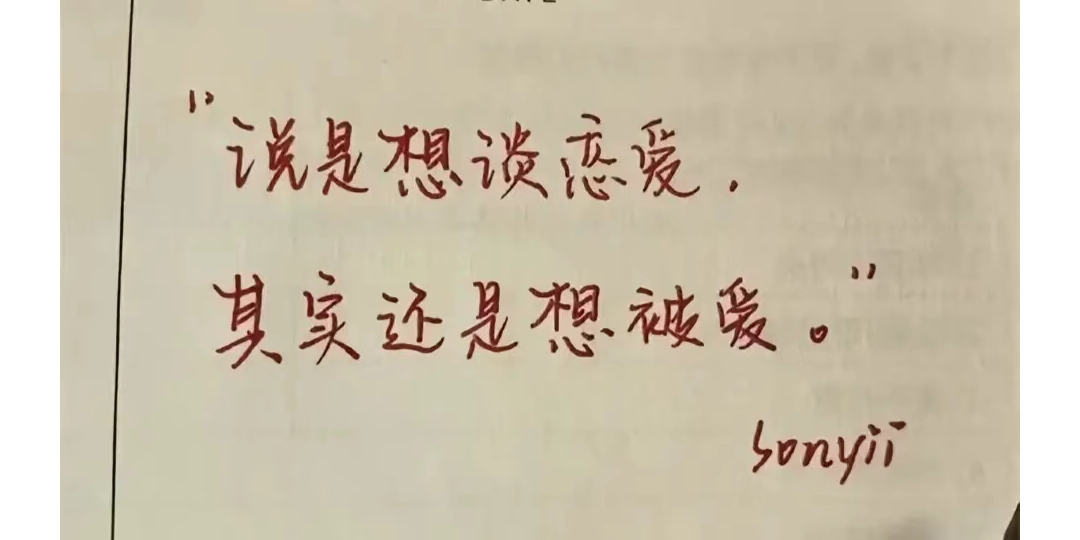 “说是想谈恋爱.
其实还是想被爱。”
sonyii